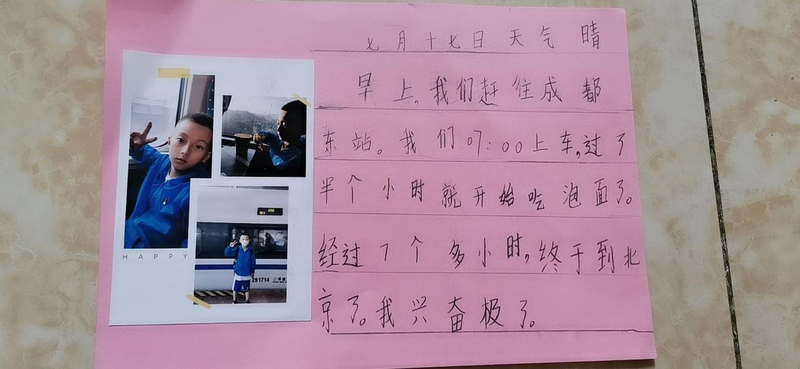 七月十七日 天气 晴
早上,我们赶往成都
东站。我们07:00上车,过了
半个小时就开始吃泡面了。
经过7个多小时,终于到北
京了。我兴奋极了。
HAPPY
291714 二等座